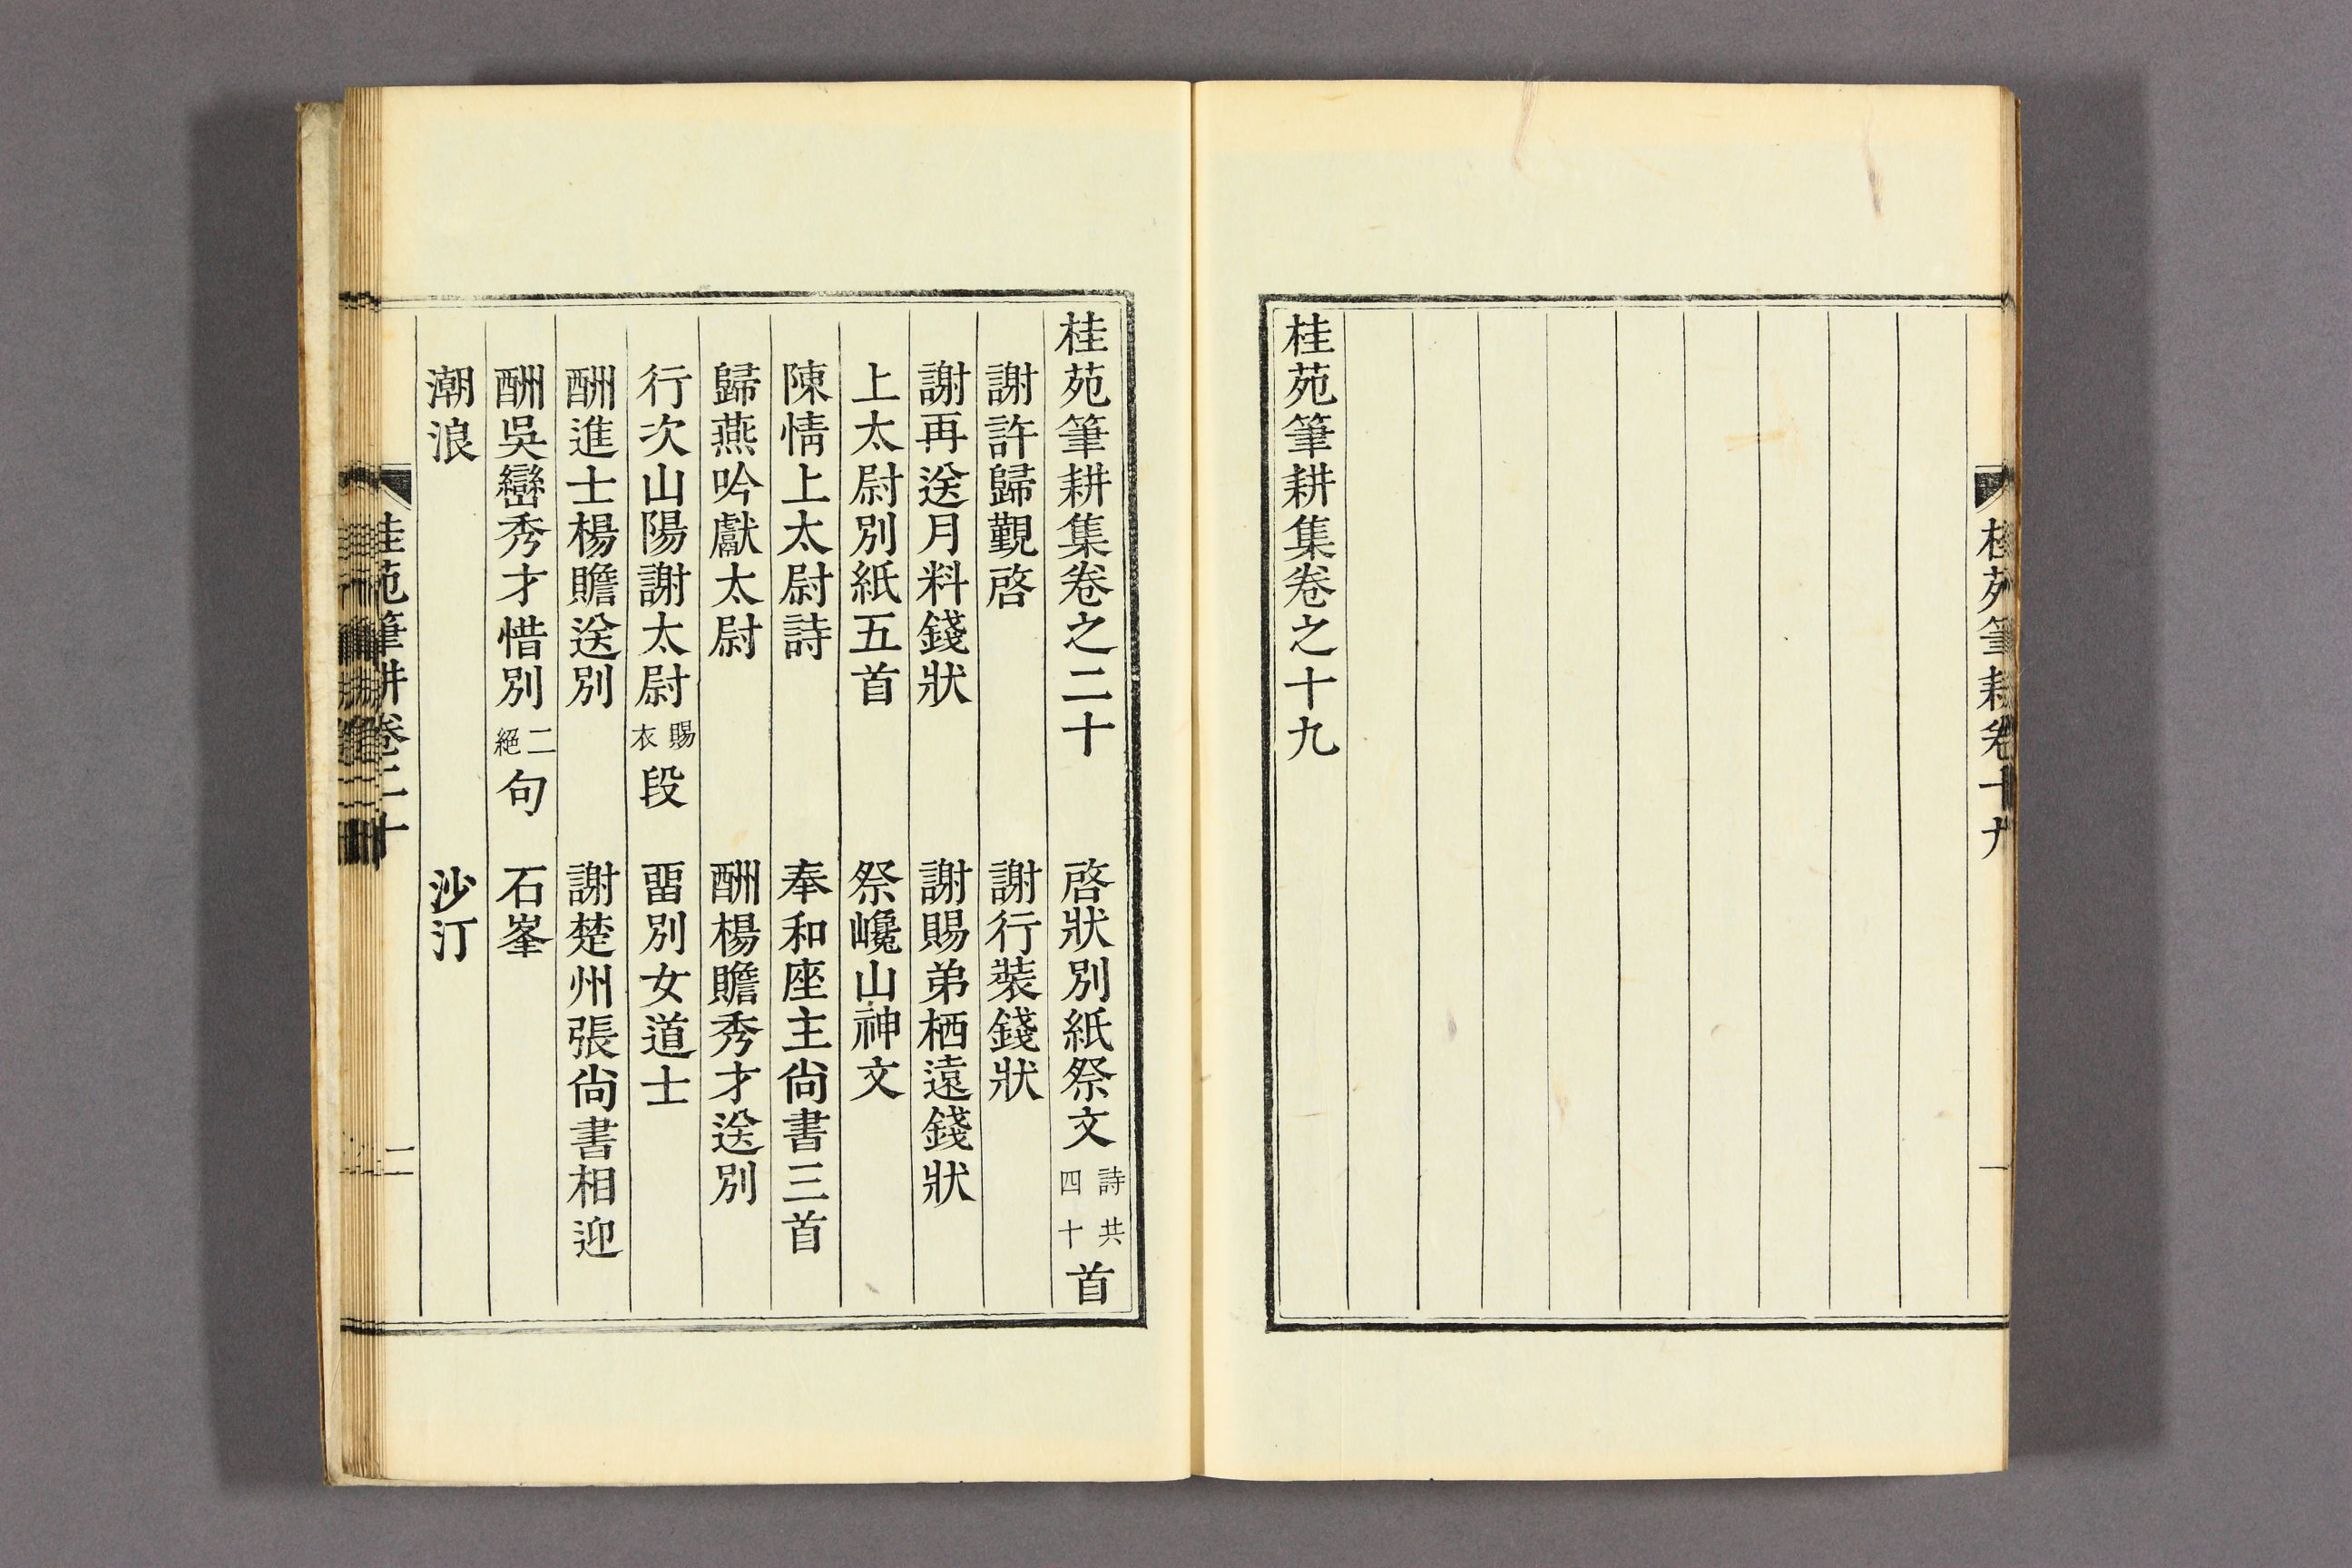 桂苑筆耕卷十九
一
桂苑筆耕集卷之十九
桂苑筆耕集卷之二十 啓狀別紙祭文詩共四十首
謝許歸覲啓 謝行裝錢狀
謝再送月料錢狀 謝賜弟栖遠錢狀
上太尉別紙五首 祭巉山神文
陳情上太尉詩 奉和座主尙書三首
歸燕吟獻太尉 酬楊贍秀才送別
行次山陽謝太尉賜衣段 畱別女道士
酬進士楊贍送別 謝楚州張尙書相迎
酬吳巒秀才惜別二絕句 石峯
潮浪 沙汀
桂苑筆耕卷二十
二